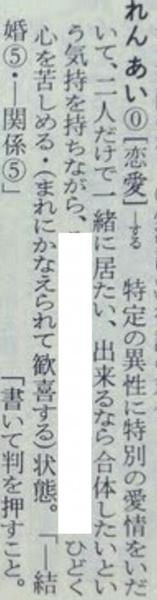 れんあい⓪[恋愛]―する 特定の異性に特別の愛情をいだ
いて、二人だけで一緒に居たい、出来るなら合体したいとい
う気持を持ちながら、 ひどく
心を苦しめる・(まれにかなえられて歓喜する)状態。「―結
婚⑤・―関係⑤」
「書いて判を押すこと。